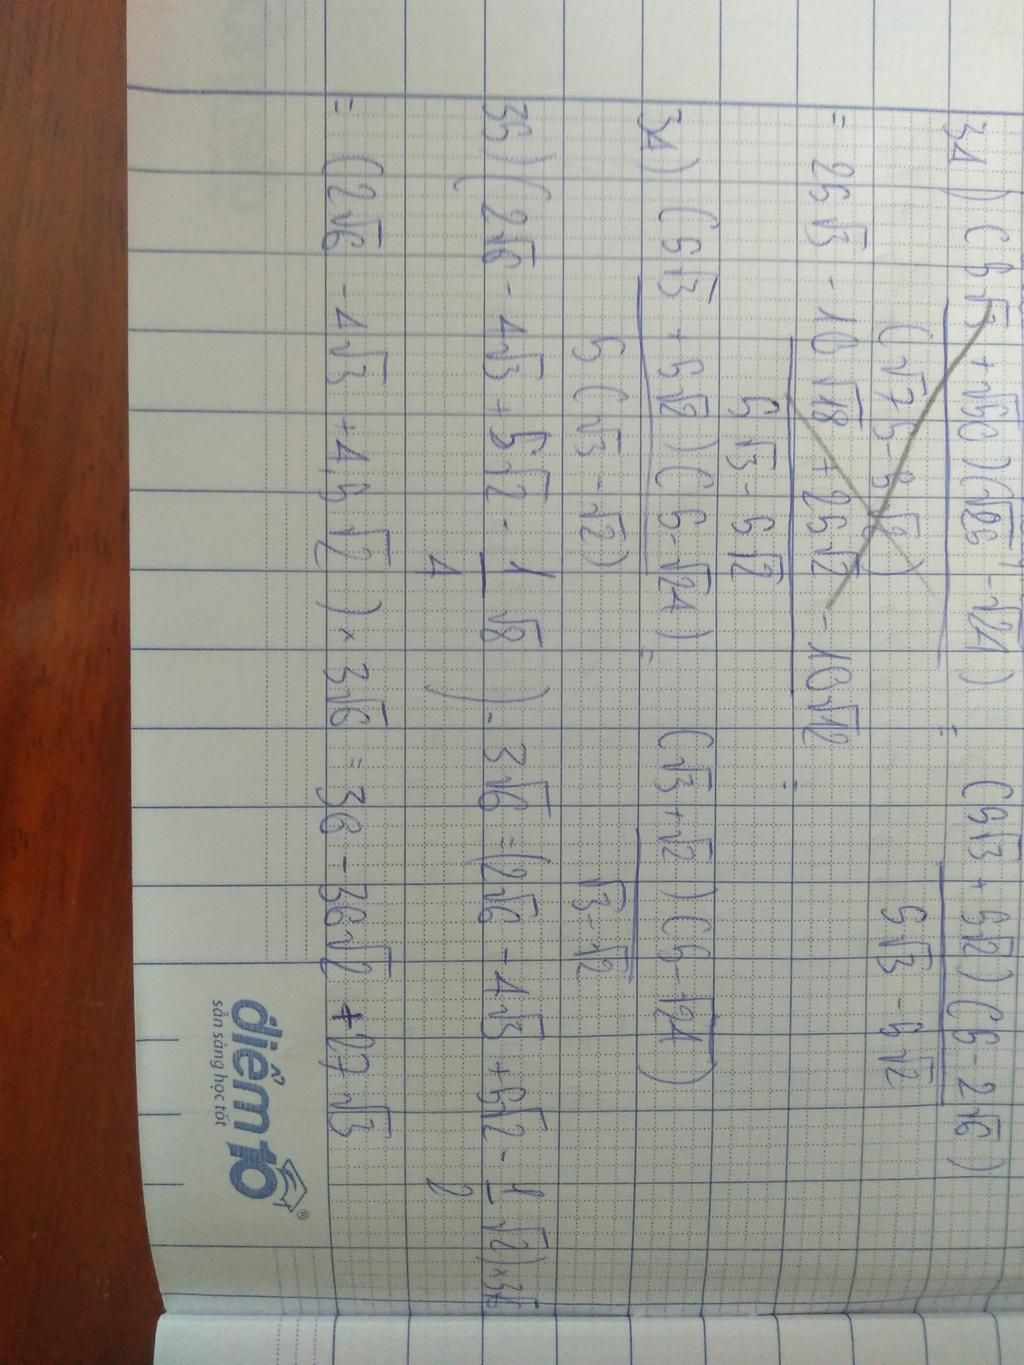 34) (5√3 + √50)(√25 - √24) = (5√3 + 5√2)(5 - 2√6)
(√75 - 5√2) 5√3 - 5√2
= 25√3 - 10√18 + 25√2 - 10√12 =
5√3 - 5√2
34) (5√3 + 5√2)(5 - √24) = (√3 + √2)(5 - √24)
5(√3 - √2) √3 - √2
35) (2√6 - 4√3 + 5√2 - 1 √8) . 3√6 = (2√6 - 4√3 + 5√2 - 1 √2) × 3√6
4 2
= (2√6 - 4√3 + 4,5√2) × 3√6 = 36 - 36√2 + 27√3
điểm 10
sẵn sàng học tốt